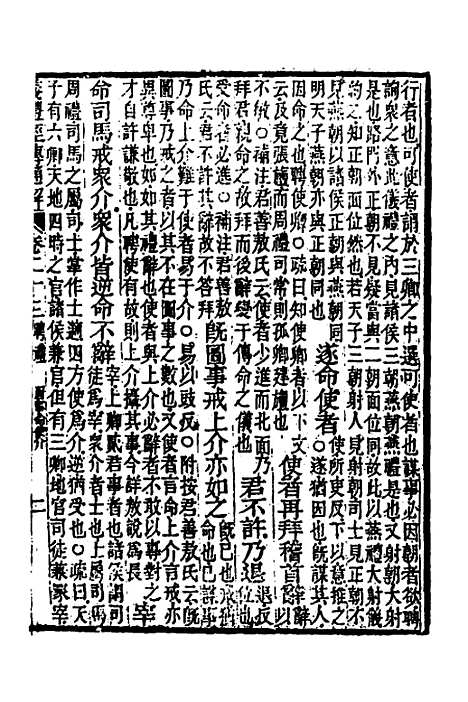 行者也可使者謂於三卿之中選可使者也謀事必因朝者欲聘
諭衆之意此儀禮之內見諸侯三朝燕朝燕禮是也又射朝大射
是也路門外正朝不見疑當與二朝面位同故此以燕禮大射儀
約之知正朝面位然也若天子三朝射人見射朝司士見正朝不
見燕朝以諸侯正朝與燕朝同使所使反下以意推之
明天子燕朝亦與正朝同也
遂命使者
遂猶因也既謀其人
因命之也聘使卿疏曰知使卿者以下文
云及竟張旜而周禮司常則孤卿建旜也
使者再拜稽首辭
辭以
不敏補注君善敖氏云使者少進而北面乃
拜君親命之故拜而後辭變于傳命之儀也
君不許乃退
退反
位也
受命者必進補注君善敖
氏云君不許其辭故不答拜
既圖事戒上介亦如之
既已也戒猶
命也已謀事
乃命上介難于使者易于介易以豉反附按君善敖氏云既
圖事乃戒之者以其不在圖事之數也又使者言命上介言戒亦
異尊卑也如如其禮辭也使者與上介必辭者不敢以專對之
才自許謙敬也凡聘使有故則上介攝其事今詳敖說爲長
宰
命司馬戒衆介衆介皆逆命不辭
宰上卿貳君事者也諸侯謂司
徒爲宰衆介者士也士屬司馬
周禮司馬之屬司士掌作士適四方使爲介逆猶受也疏曰天
子有六卿天地四時之官諸侯兼官但有三卿地官司徒兼冢宰